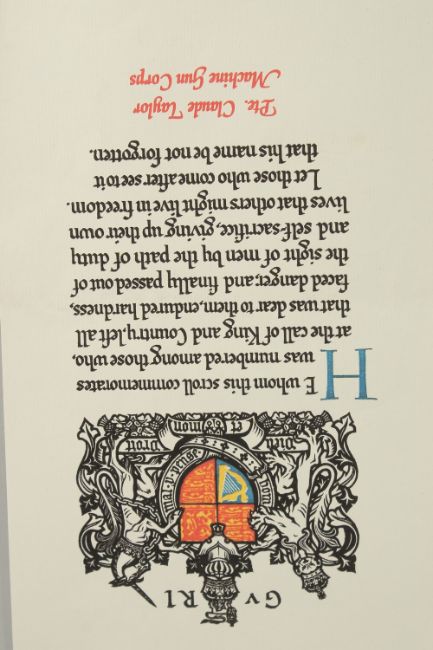 GvRI
Dieu et mon Droit
HE whom this scroll commemorates
was numbered among those who,
at the call of King and Country, left all
that was dear to them, endured hardness,
faced danger, and finally passed out of
the sight of men by the path of duty
and self-sacrifice, giving up their own
lives that others might live in freedom.
Let those who come after see to it
that his name be not forgotten.
Pte. Claude Taylor
Machine Gun Corps